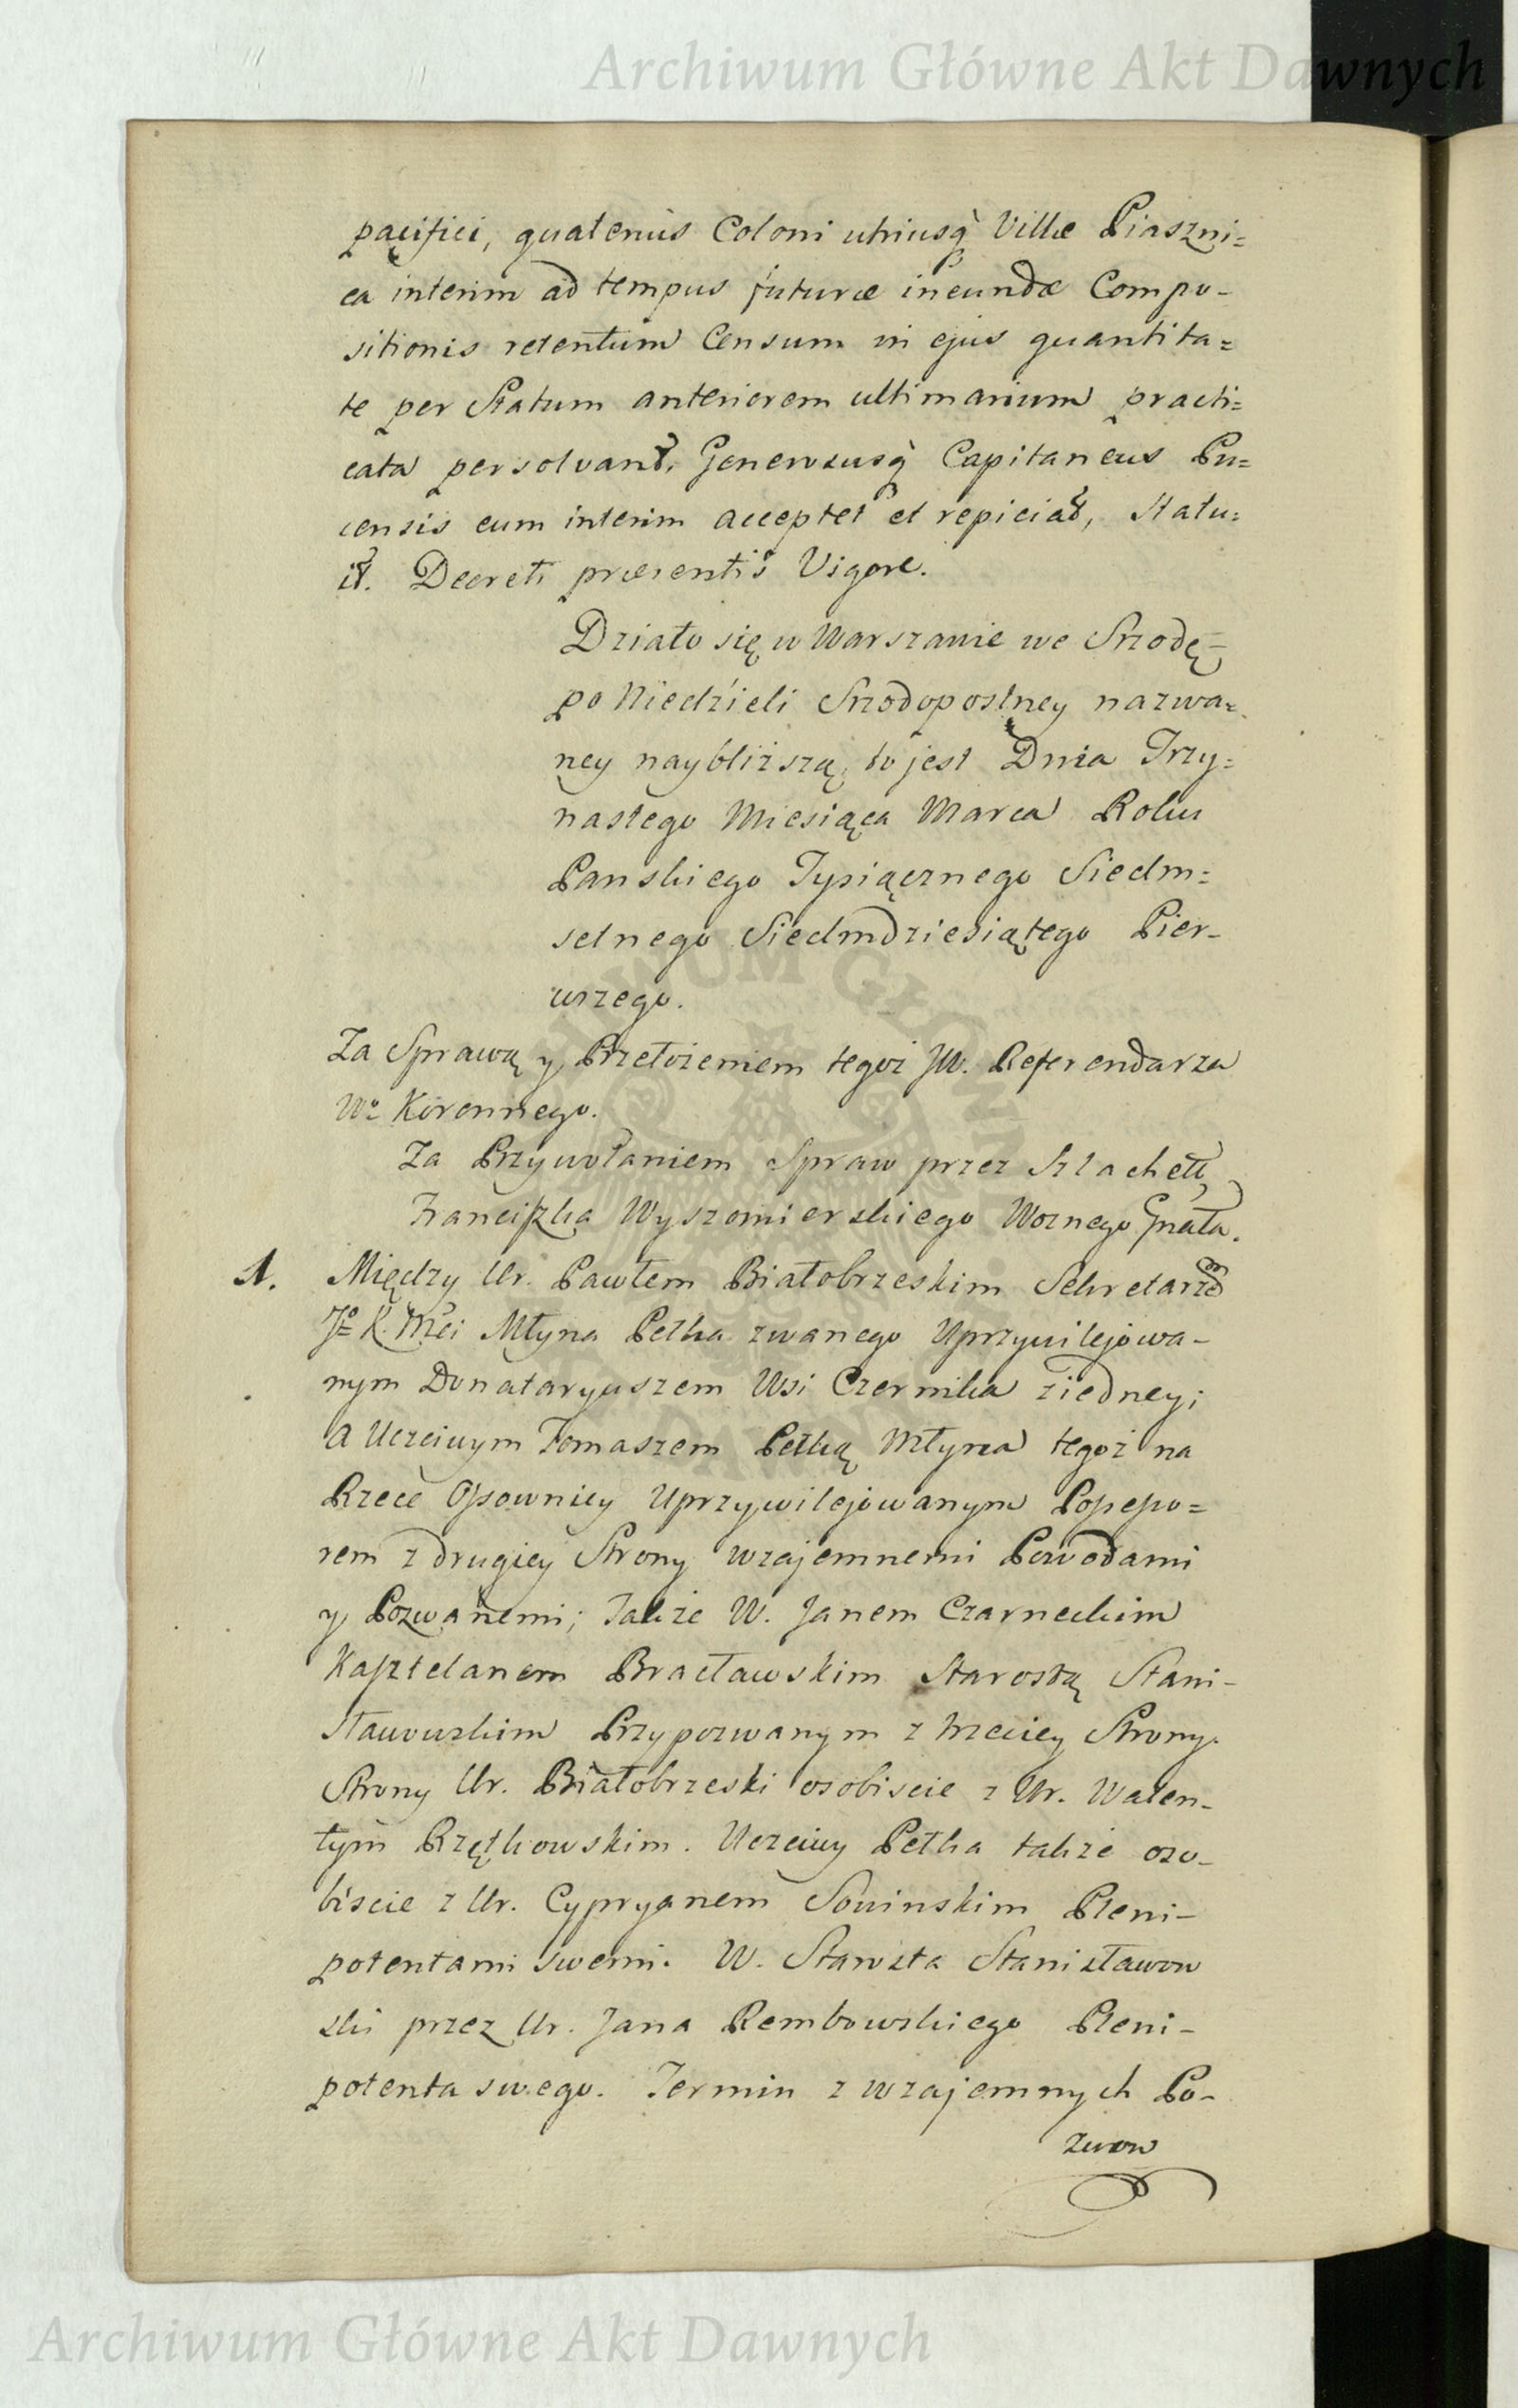 Archiwum Główne Akt Dawnych
pacifici, quatenùs Coloni utriusq̀ Villæ Piaszni=
ca interim ad tempus futuræ ineundæ Compo-
sitionis retentum Censum in ejus quantita=
te per Statum anteriorem ultimarium practi=
cata persolvant, Generosusq̀ Capitaneus Pu=
censis eum interim acceptet et repiciat, Statu=
it. Decreti præsentis Vigore.
Działo się w Warszawie we Srzodę
po Niedzieli Srzodopostney nazwa=
ney naybliższą, to jest Dnia Trzy=
nastego Miesiąca Marca Roku
Panskiego Tysiącznego Siedm=
setnego Siedmdziesiątego Pier-
wszego.
Za Sprawą y Przełożeniem tegoż JW. Referendarza
Wo Koronnego.
Za Przywołaniem Spraw przez Szlachett
Franciszka Wyszomierskiego Woznego Gnała.
1. Między Ur. Pawłem Białobrzeskim Sekretarzem
Jo K. Mci Młyna Pełka zwanego Uprzywilejowa-
nym Donataryuszem Wsi Czernika ziedney;
A Uczciwym Tomaszem Pełką Młyna tegoż na
Rzece Ossownicy Uprzywilejowanym Possesso=
rem z drugiey Strony wzajemnemi Powodami
y Pozwanemi; Także W. Janem Czarneckim
Kasztelanem Bracławskim Starostą Stani-
sławowskim Przypozwanym z trzeciey Strony.
Strony Ur. Białobrzeski osobiscie z Ur. Walen-
tym Rzętkowskim. Uczciwy Pełka także oso-
biscie z Ur. Cypryanem Sowinskim Pleni-
potentami swemi. W. Starosta Stanisławow
ski przez Ur. Jana Rembowskiego Pleni-
potenta swego. Termin z wzajemnych Po-
zwow
Archiwum Główne Akt Dawnych